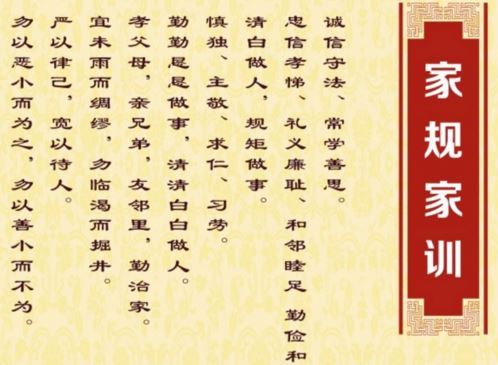 家规家训
诚信守法、常学善思。
忠信孝悌、礼义廉耻、和邻睦足 勤俭和
清白做人，规矩做事。
慎独、主敬、求仁、习劳。
勤勤恳恳做事，清清白白做人。
孝父母，亲兄弟，友邻里，勤治家。
宜未雨而绸缪，勿临渴而掘井。
严以律己，宽以待人。
勿以恶小而为之，勿以善小而不为。